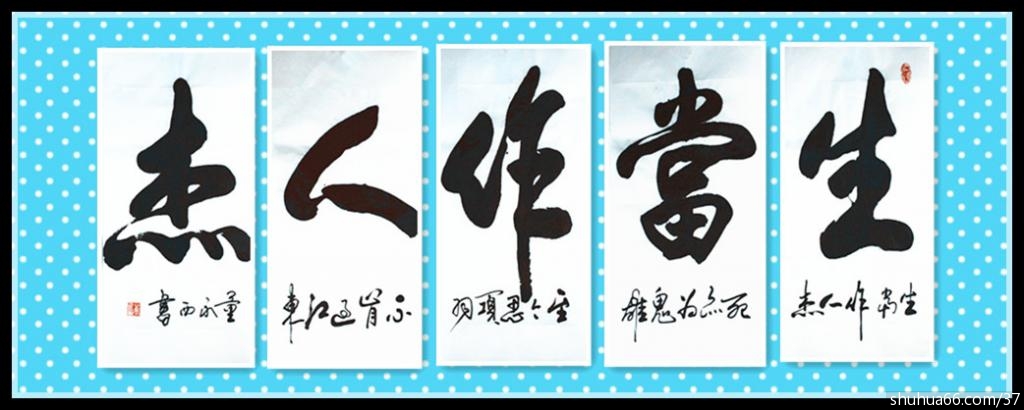 生當作人杰
生當作人杰
死亦为鬼雄
至今思項羽
不肯过江東
書
shuhua66.com/37